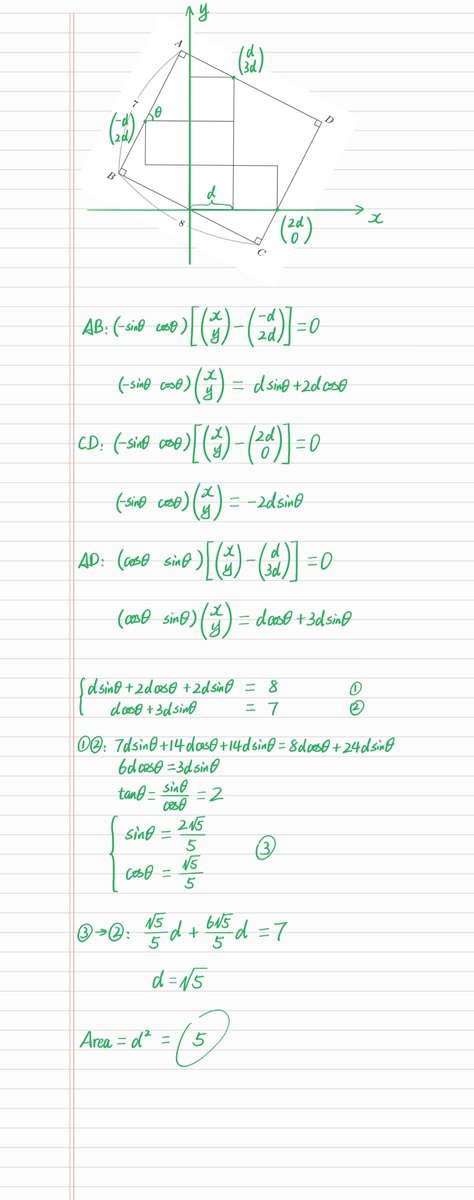 y
A
(d 3d)
D
7
(-d 2d)
θ
B
d
8
C
(2d 0)
x
AB: (-sinθ cosθ)[(x y)-(-d 2d)]=0
(-sinθ cosθ)(x y) = dsinθ+2dcosθ
CD: (-sinθ cosθ)[(x y)-(2d 0)]=0
(-sinθ cosθ)(x y) = -2dsinθ
AD: (cosθ sinθ)[(x y)-(d 3d)]=0
(cosθ sinθ)(x y) = dcosθ+3dsinθ
{dsinθ+2dcosθ+2dsinθ = 8 ①
dcosθ+3dsinθ = 7 ②
①②: 7dsinθ+14dcosθ+14dsinθ=8dcosθ+24dsinθ
6dcosθ=3dsinθ
tanθ=sinθ/cosθ=2
{sinθ=2√5/5
cosθ=√5/5 ③
③→②: √5/5 d + 6√5/5 d = 7
d=√5
Area = d² = 5